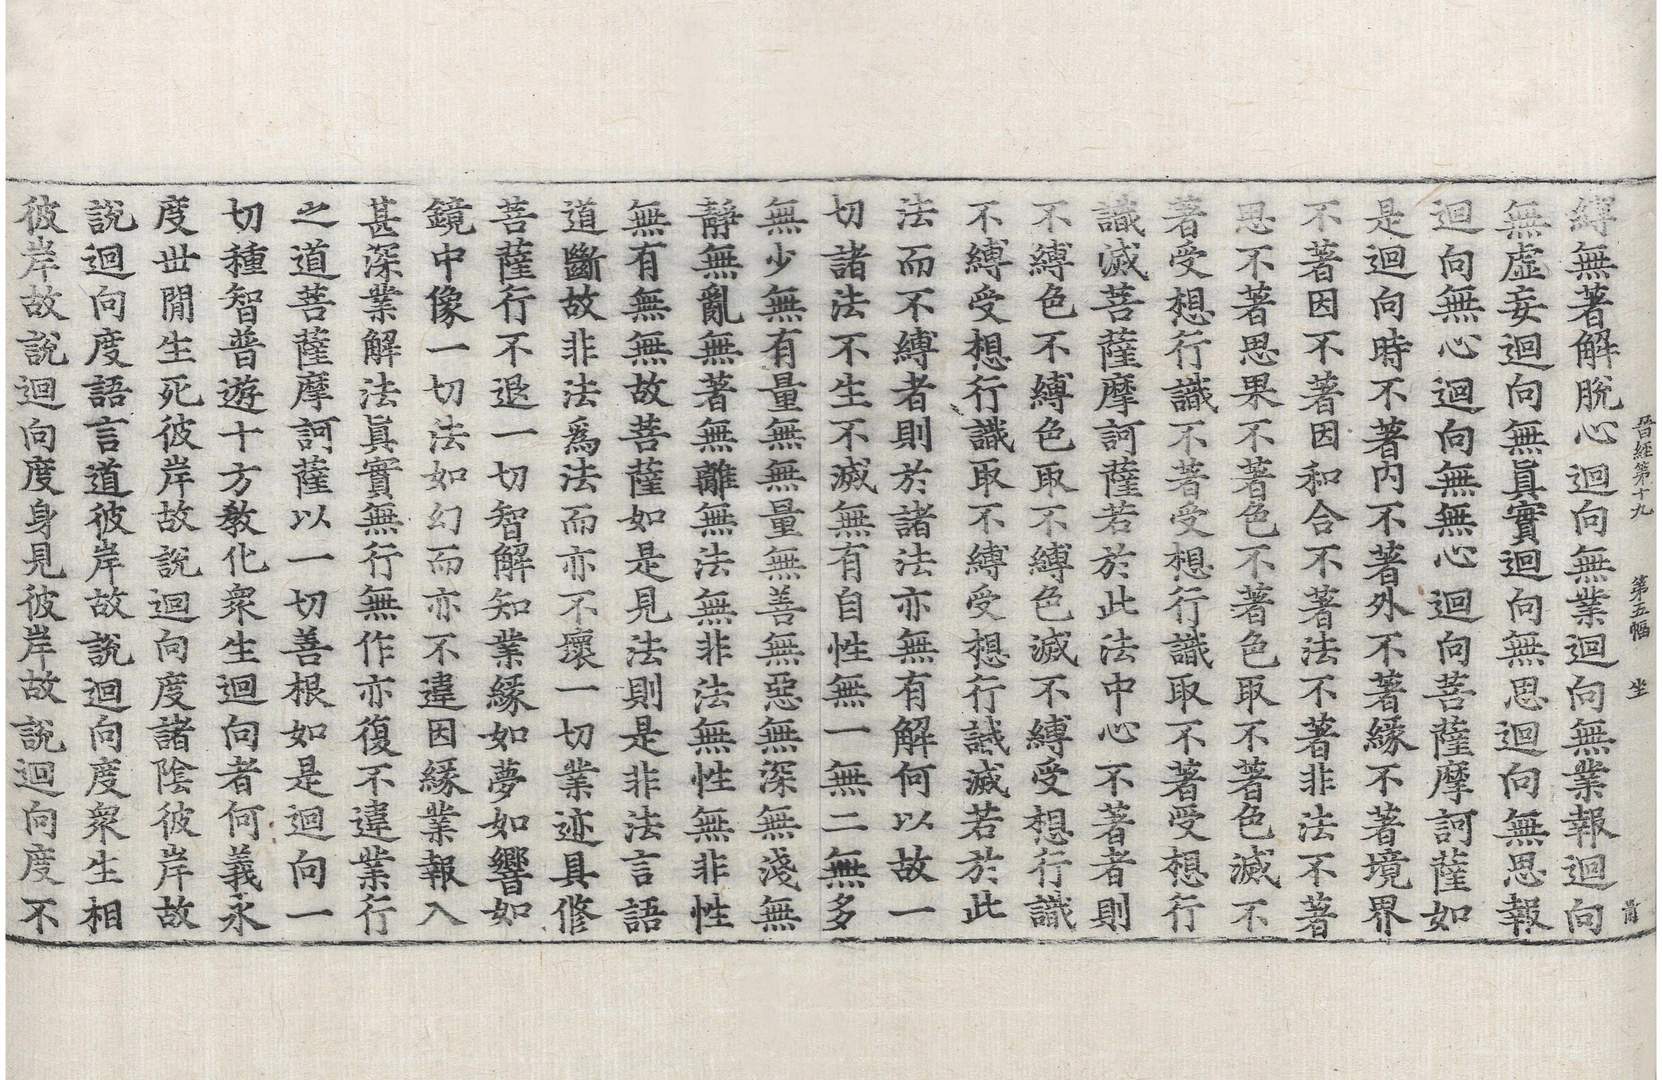 晉經第十九 第五幅 坐
縛無著解脫心迴向無業迴向無業報迴向
無虛妄迴向無眞實迴向無思迴向無思報
迴向無心迴向無無心迴向菩薩摩訶薩如
是迴向時不著內不著外不著緣不著境界
不著因不著因和合不著法不著非法不著
思不著思果不著色不著色取不著色滅不
著受想行識不著受想行識取不著受想行
識滅菩薩摩訶薩若於此法中心不著者則
不縛色不縛色取不縛色滅不縛受想行識
不縛受想行識取不縛受想行識滅若於此
法而不縛者則於諸法亦無有解何以故一
切諸法不生不滅無有自性無一無二無多
無少無有量無無量無善無惡無深無淺無
靜無亂無著無離無法無非法無性無非性
無有無無故菩薩如是見法則是非法言語
道斷故非法爲法而亦不壞一切業迹具修
菩薩行不退一切智解知業緣如夢如響如
鏡中像一切法如幻而亦不違因緣業報入
甚深業解法眞實無行無作亦復不違業行
之道菩薩摩訶薩以一切善根如是迴向一
切種智普遊十方教化衆生迴向者何義永
度世閒生死彼岸故說迴向度諸陰彼岸故
說迴向度語言道彼岸故說迴向度衆生相
彼岸故說迴向度身見彼岸故說迴向度不